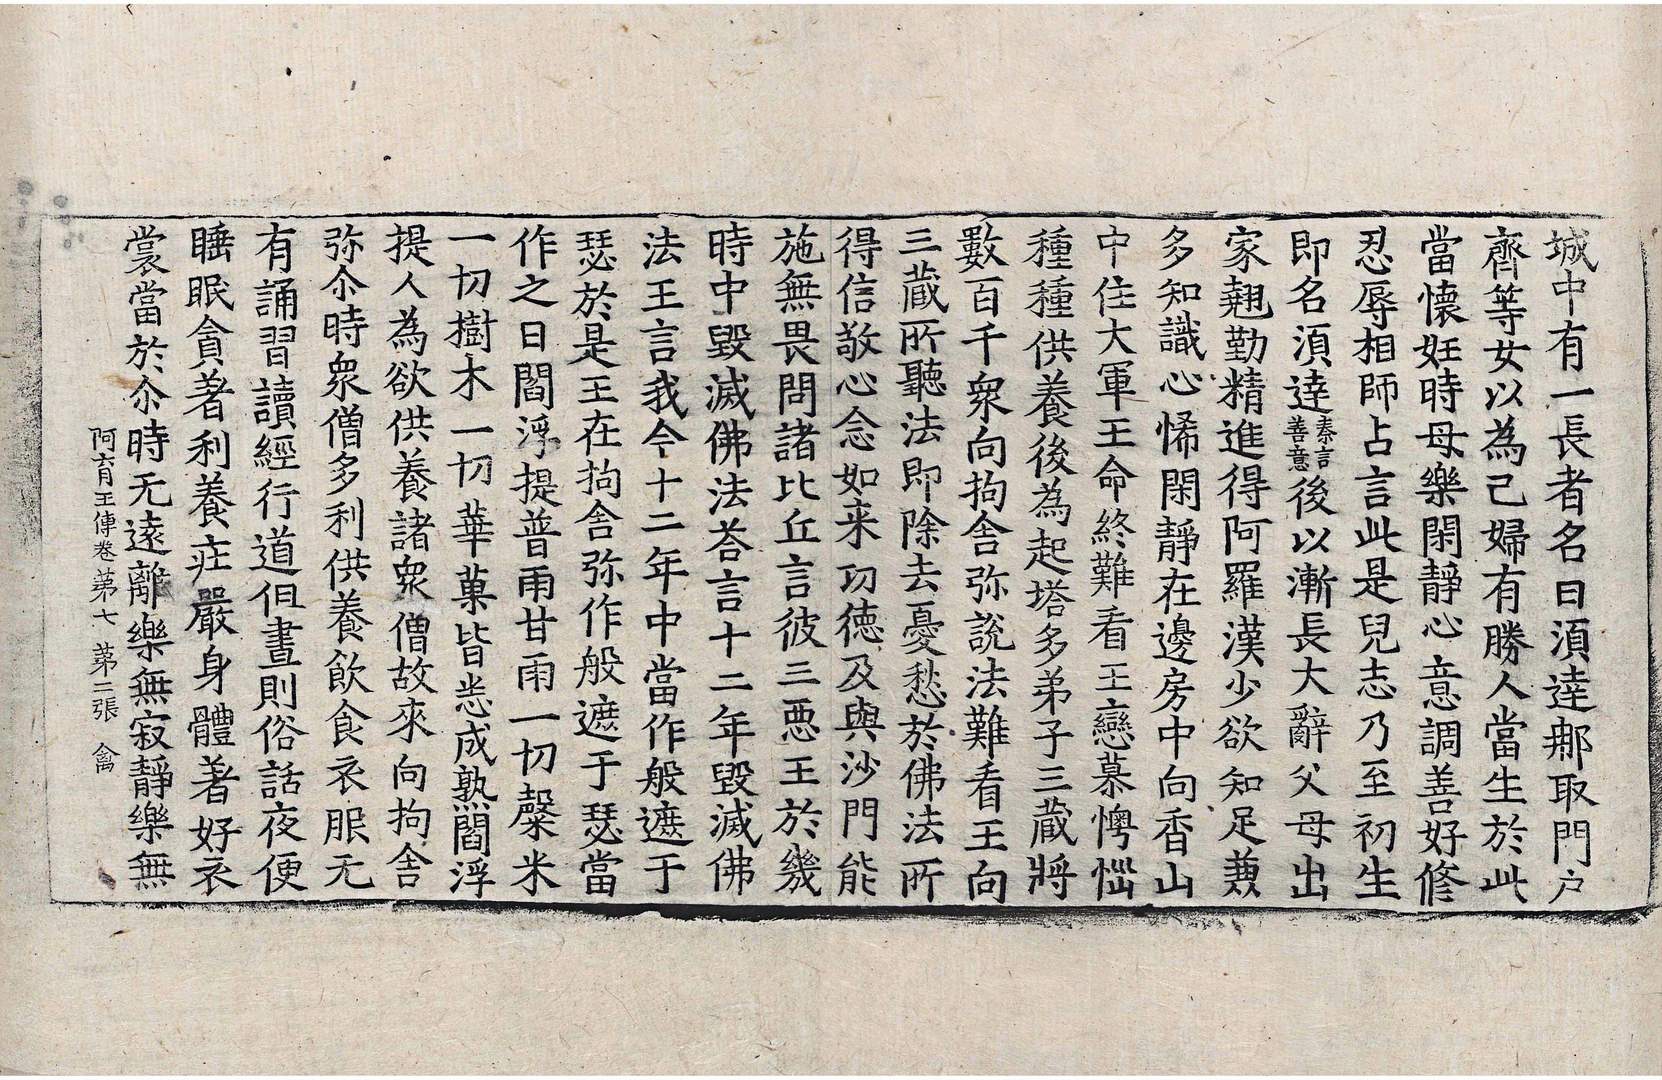 城中有一長者名曰須達那取門户
齊等女以為己婦有勝人當生於此
當懷妊時母樂閑靜心意調善好修
忍辱相師占言此是兒志乃至初生
即名須達秦言善意後以漸長大辭父母出
家翹勤精進得阿羅漢少欲知足兼
多知識心悕閑靜在邊房中向香山
中住大軍王命終難看王戀慕懊惱
種種供養後為起塔多弟子三藏將
數百千衆向拘舍弥說法難看王向
三藏所聽法即除去憂愁於佛法所
得信敬心念如来功徳及與沙門能
施無畏問諸比丘言彼三惡王於幾
時中毀滅佛法荅言十二年毀滅佛
法王言我今十二年中當作般遮于
瑟於是王在拘舍弥作般遮于瑟當
作之日閻浮提普雨甘雨一切糳米
一切樹木一切華菓皆悉成熟閻浮
提人為欲供養諸衆僧故來向拘舍
弥尒時衆僧多利供養飲食衣服无
有誦習讀經行道但晝則俗話夜便
睡眠貪著利養庄嚴身體著好衣
裳當於尒時无遠離樂無寂靜樂無
阿育王傳卷第七 第二張 禽